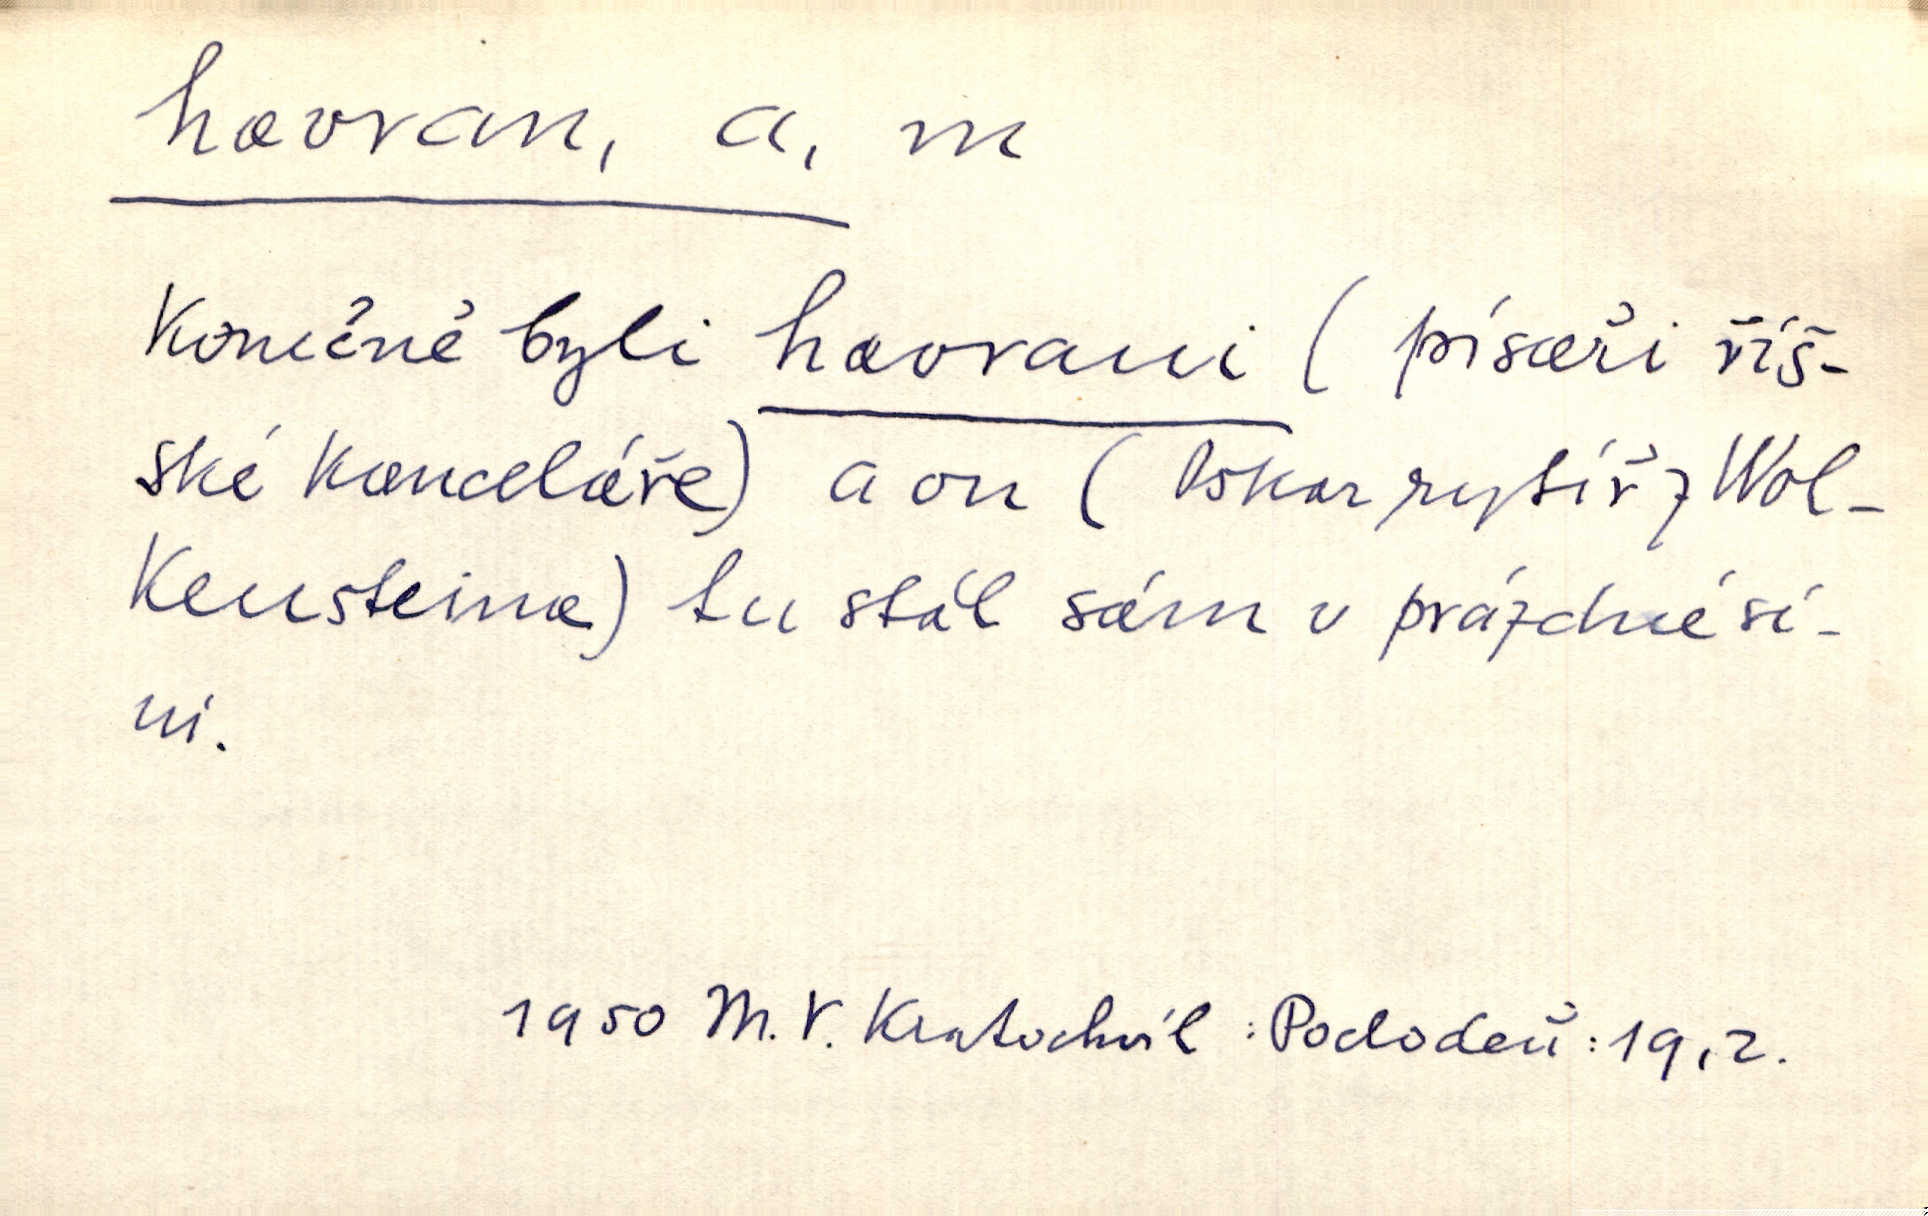 havran, a, m
Konečně byli havrani (písaři říš-
ské kanceláře) a on (Oskar rytíř z Wol-
kensteina) tu stál sám v prázdné sí-
ni.
1950 M. V. Kratochvíl : Podoben : 19,2.